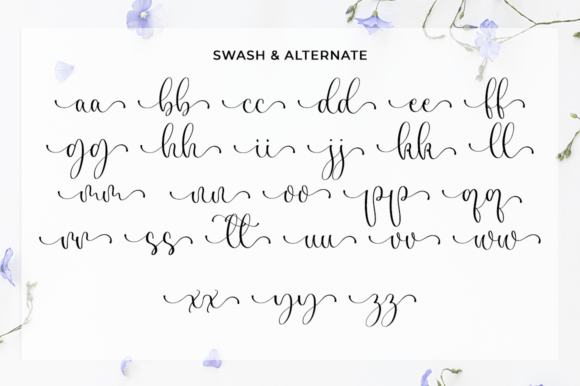 SWASH & ALTERNATE
aa bb cc dd ee ff
gg hh ii jj kk ll
mm nn oo pp qq
rr ss tt uu vv ww
xx yy zz